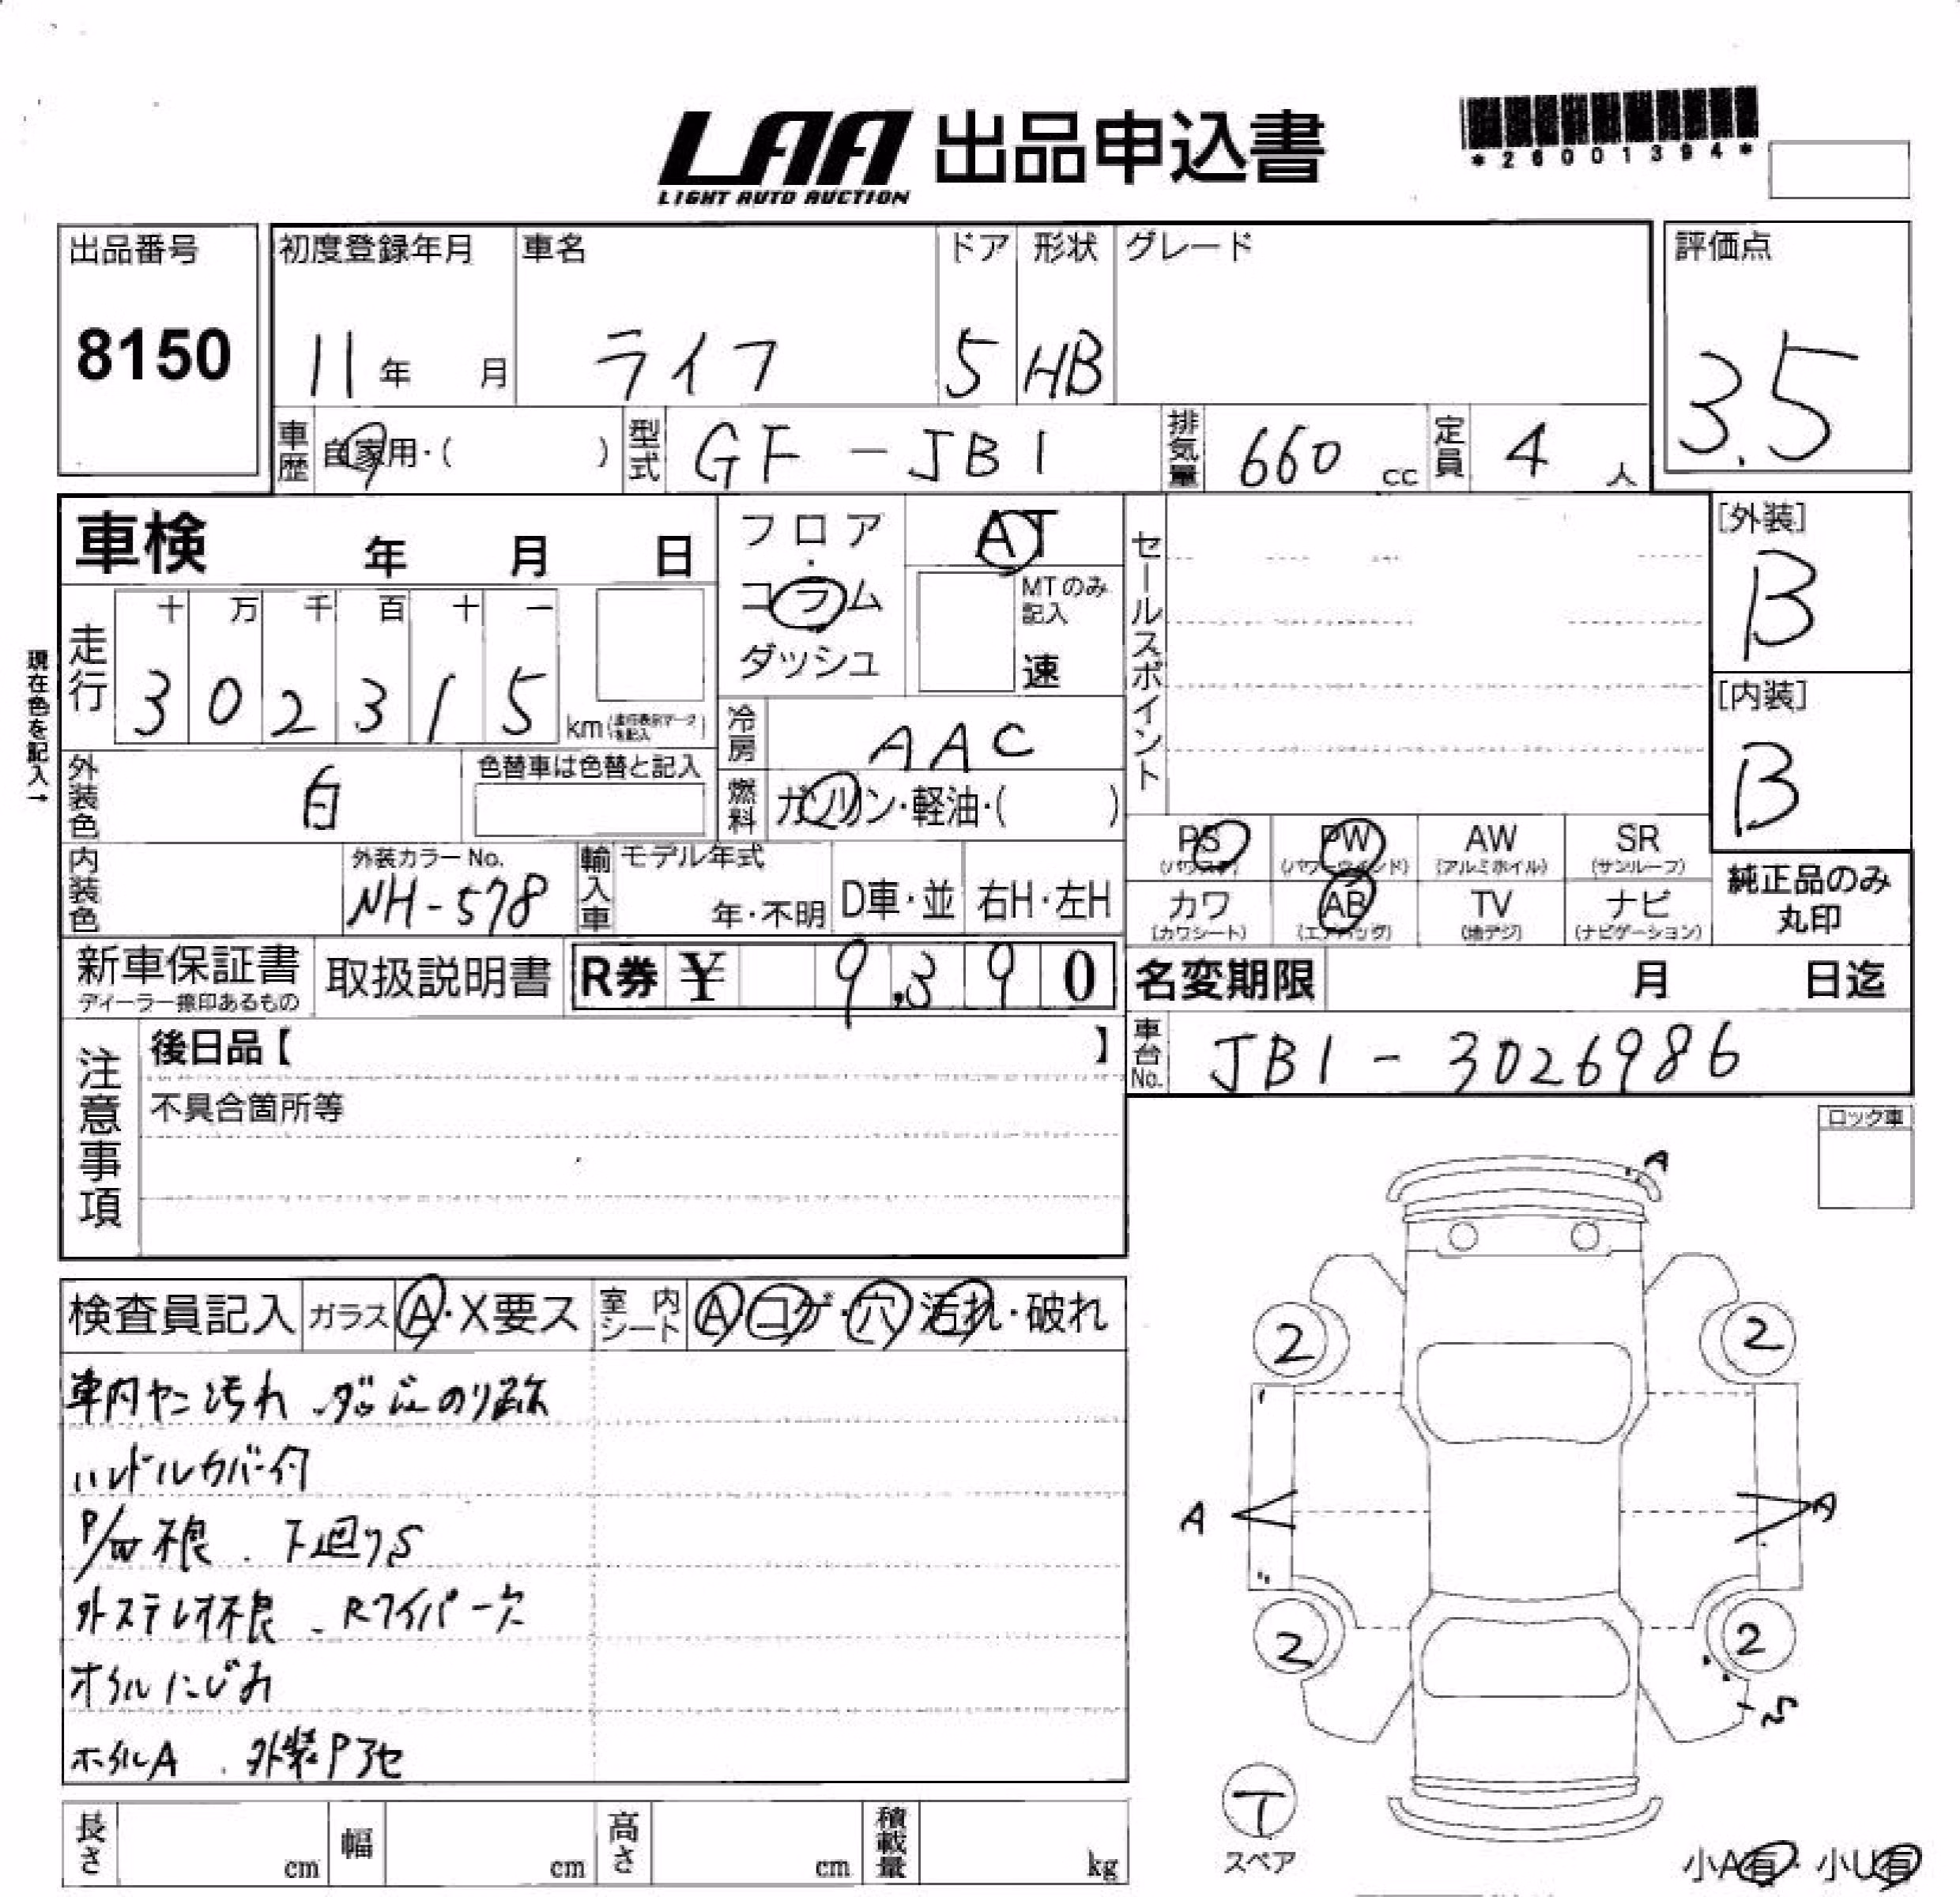 LAA 出品申込書
LIGHT AUTO AUCTION
*26001394*
出品番号 初度登録年月 車名 ドア 形状 グレード 評価点
8150 11年 月 ライフ 5 HB 3.5
車歴 自家用・( ) 型式 GF-JB1 排気量 660 cc 定員 4 人
車検 年 月 日 フロア・コラム ダッシュ AT
MTのみ記入 速
セールスポイント
[外装] B
[内装] B
現在色を記入→
走行 十 万 千 百 十 一
3 0 2 3 1 5 km
冷房 AAC
外装色 白 色替車は色替と記入
燃料 ガソリン・軽油・( )
PS (パワステ) PW (パワーウインド) AW (アルミホイル) SR (サンルーフ)
内装色 外装カラーNo. NH-578 輸入車 モデル年式 年・不明 D車・並 右H・左H
カワ (カワシート) AB (エアバッグ) TV (地デジ) ナビ (ナビゲーション)
純正品のみ
丸印
新車保証書 取扱説明書 R券 ¥ 9,390
ディーラー捺印あるもの
名変期限 月 日迄
車台No. JB1-3026986
注意事項
後日品【 】
不具合箇所等
ロック車
検査員記入 ガラス A・X要ス 室内シート A・コゲ・穴・汚れ・破れ
車内ヤニ汚れ
ハンドルカバー付
P/W不良. 下廻りS
外ステレオ不良. Rワイパー欠
オイルにじみ
ホイルA. 外装Pアセ
A
2 2
A A
2 2
T
スペア
小A有・小U有
長さ cm 幅 cm 高さ cm 積載量 kg